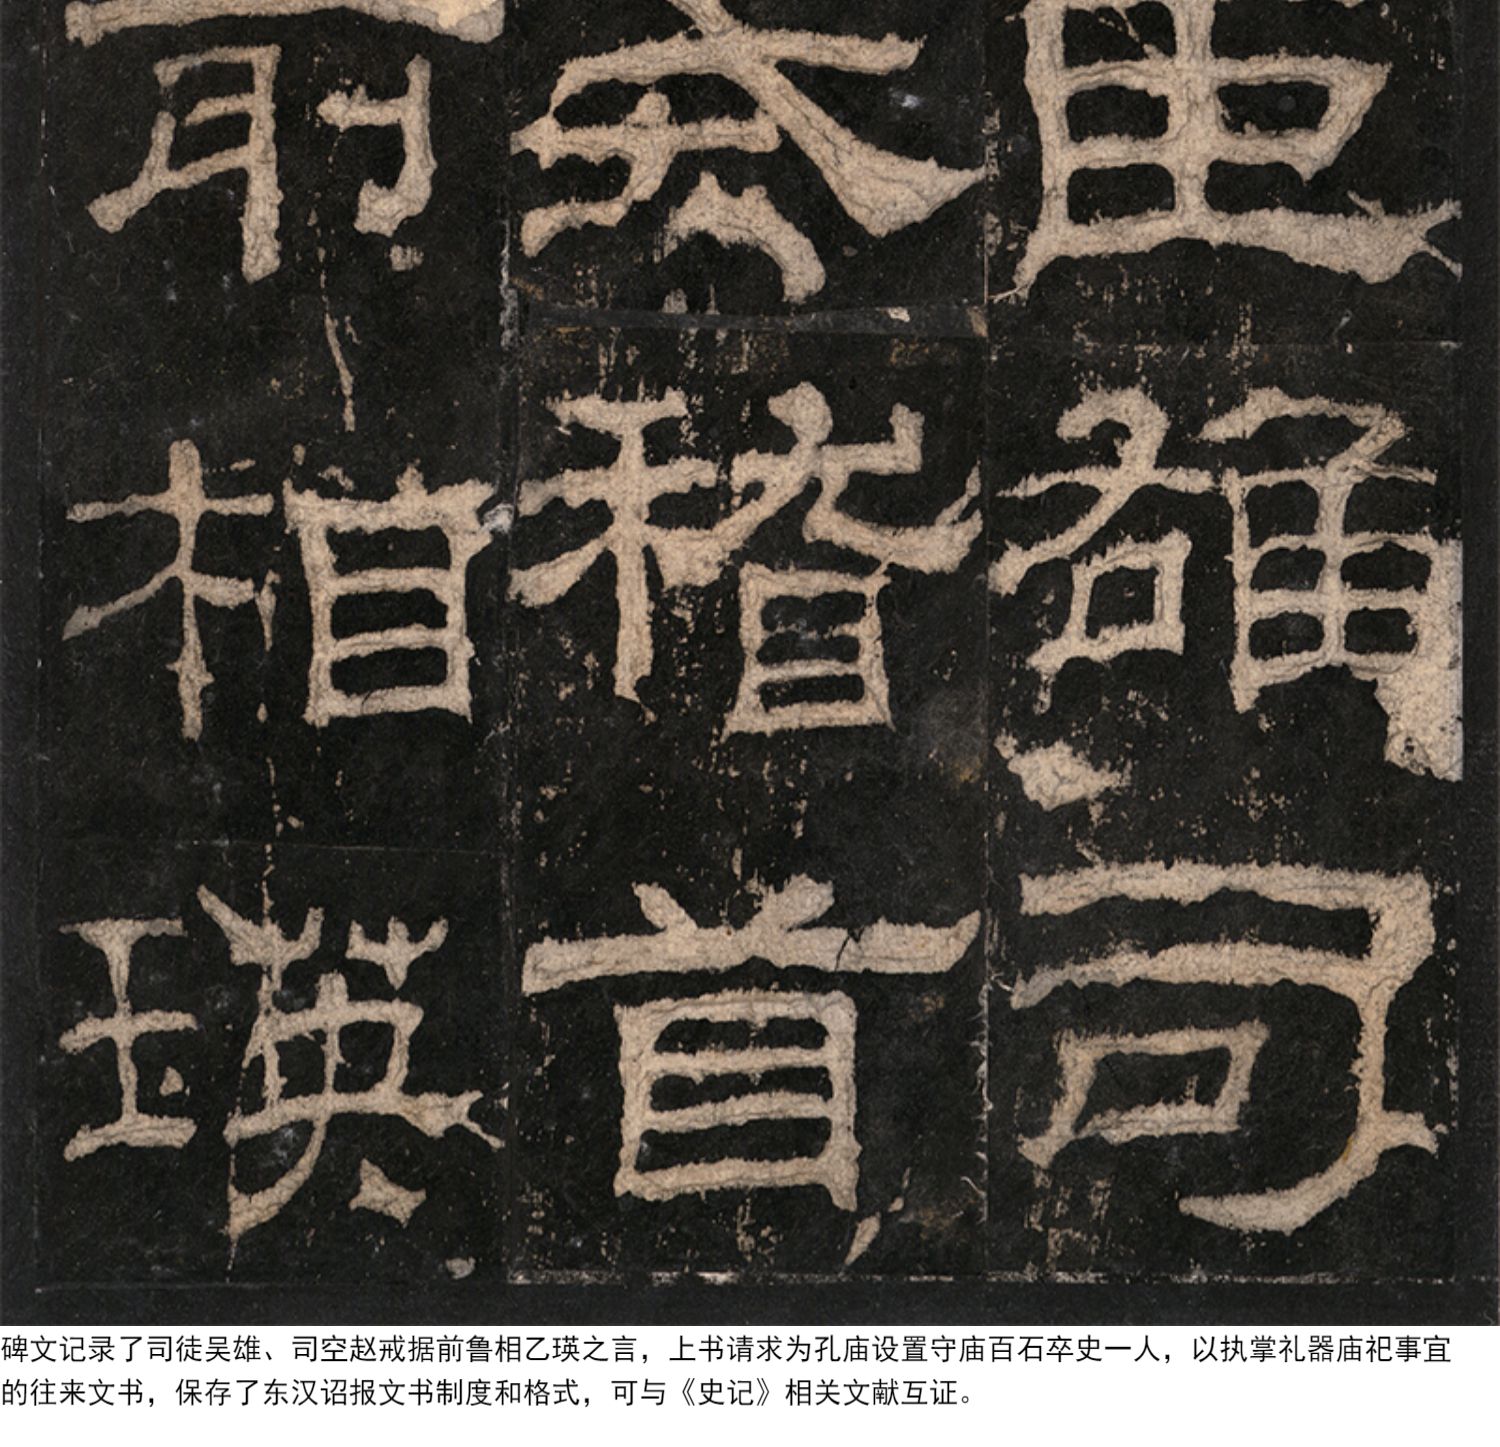 臣雄司
戒稽首
前相瑛
碑文记录了司徒吴雄、司空赵戒据前鲁相乙瑛之言，上书请求为孔庙设置守庙百石卒史一人，以执掌礼器庙祀事宜
的往来文书，保存了东汉诏报文书制度和格式，可与《史记》相关文献互证。